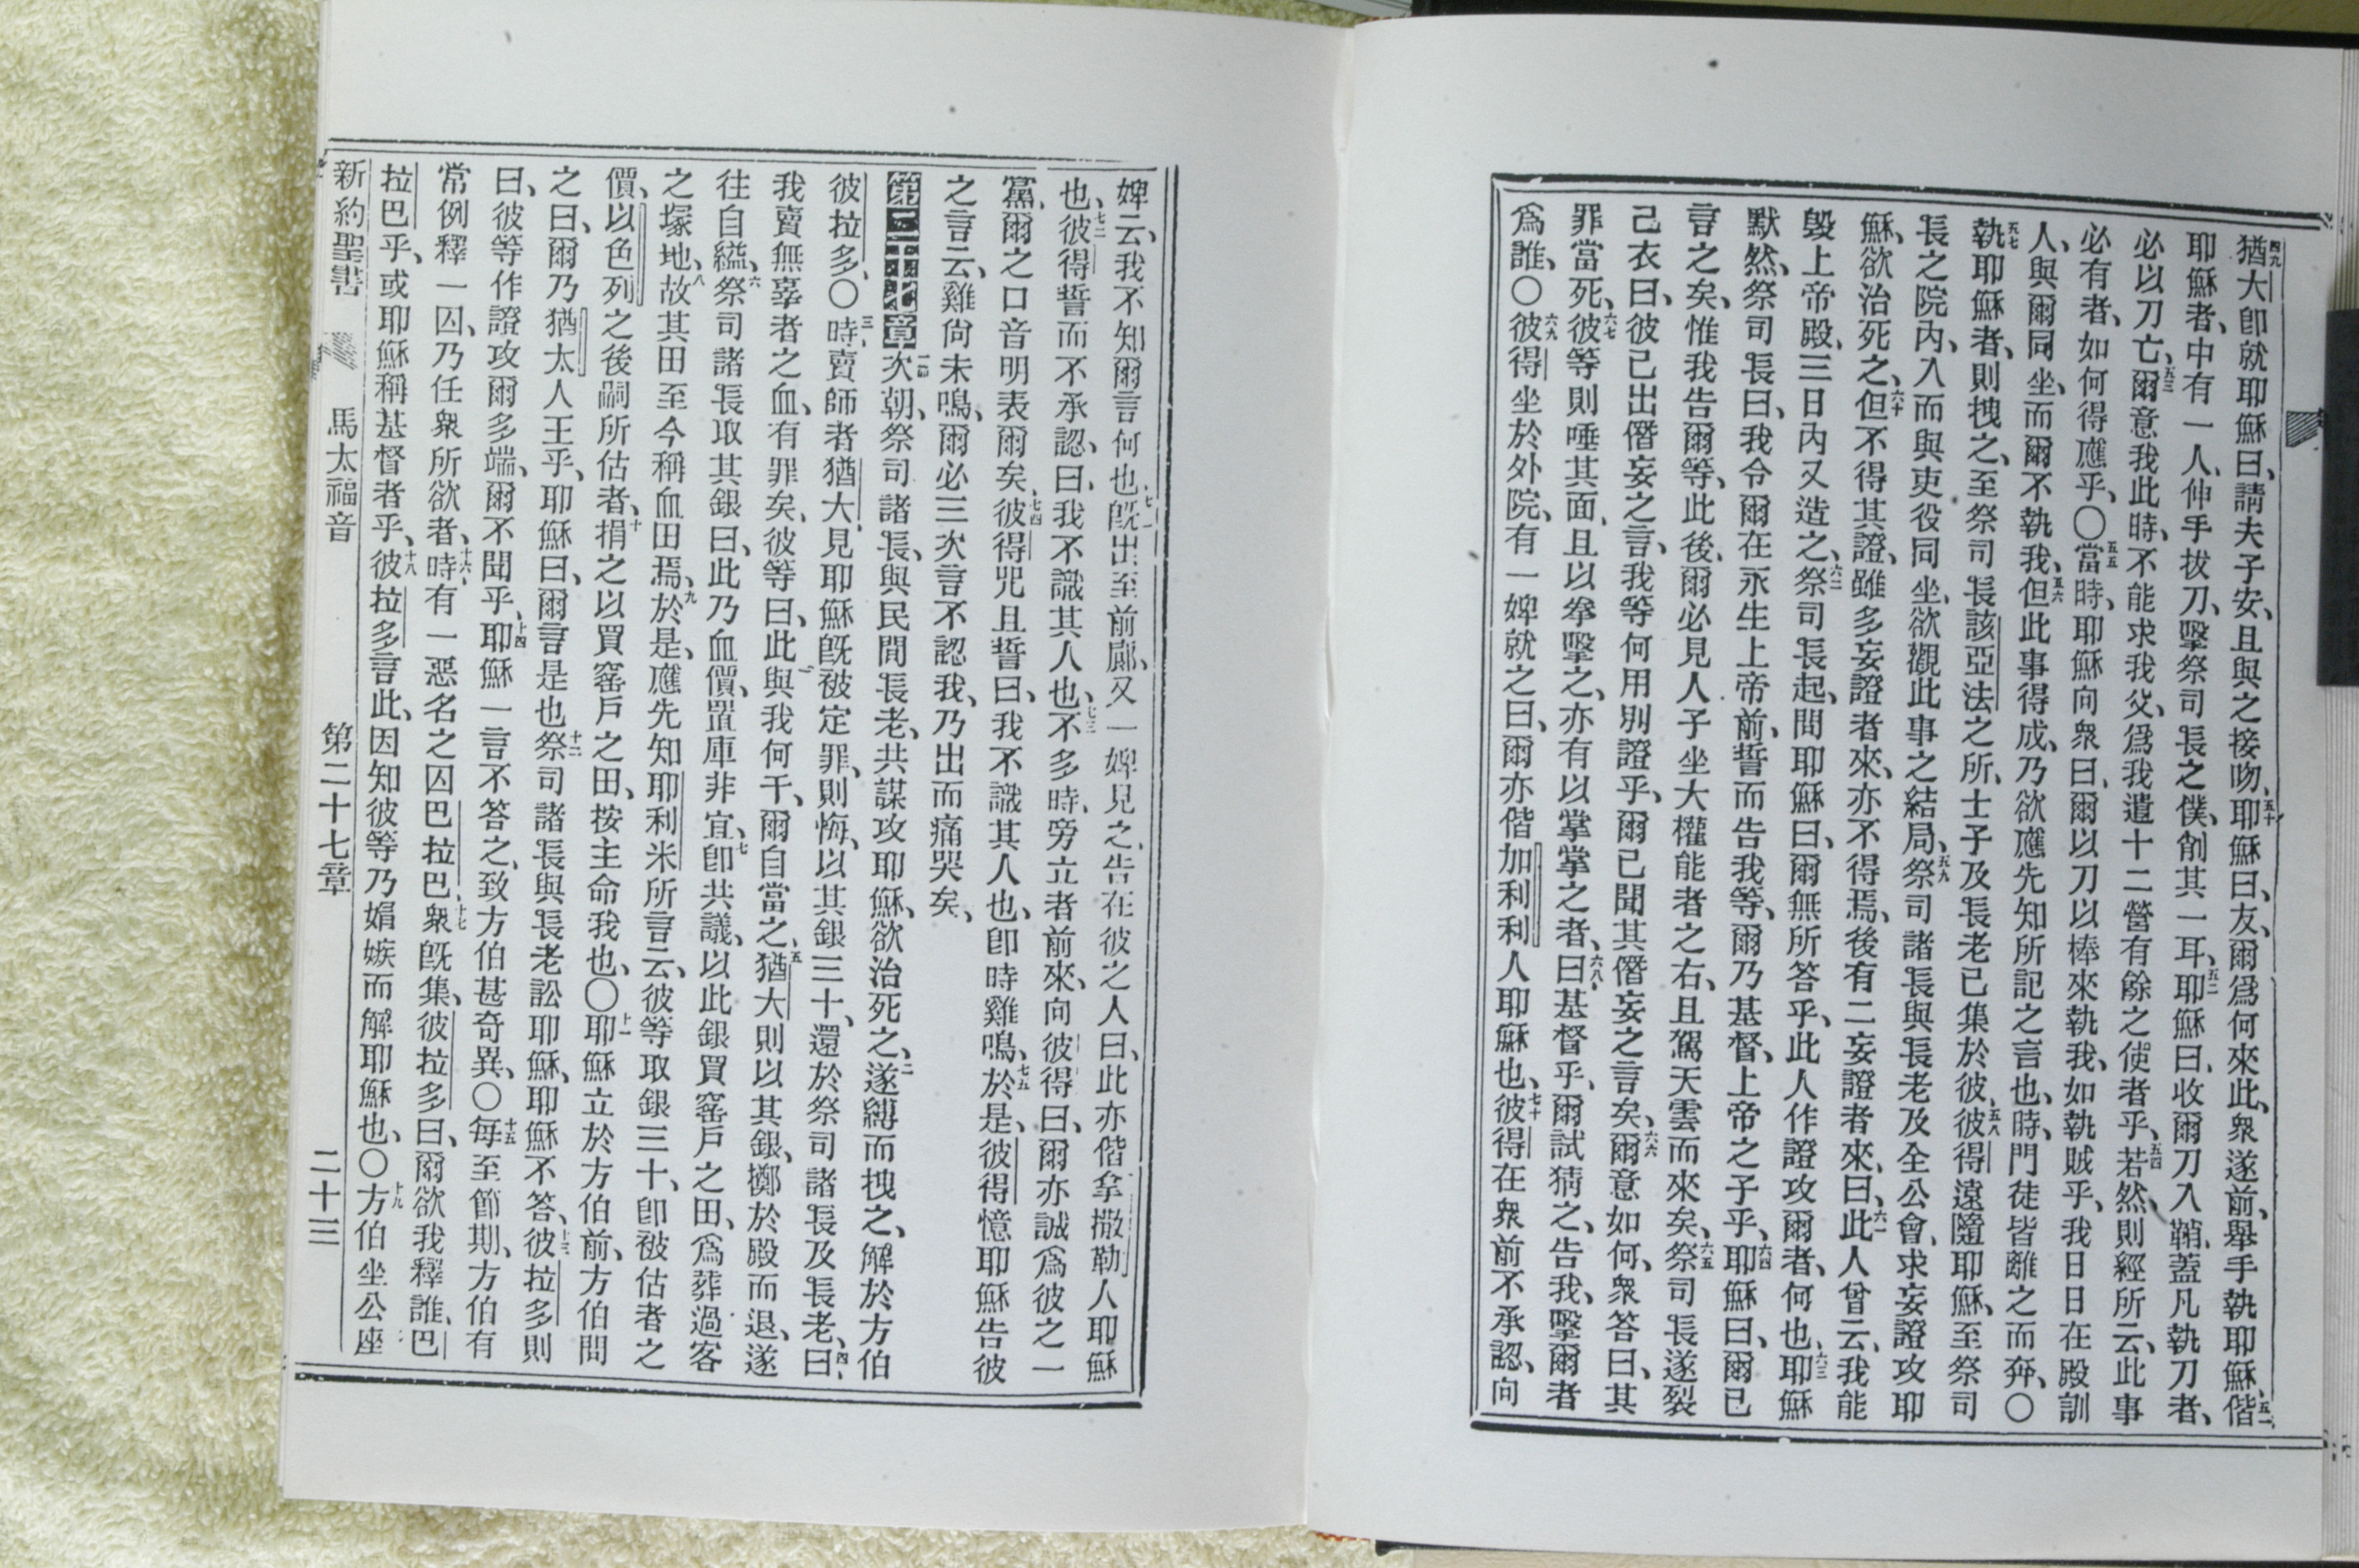 四九猶大卽就耶穌曰、請夫子安、且與之接吻、五十耶穌曰、友、爾爲何來此、衆遂前、舉手執耶穌、五一偕
耶穌者、中有一人、伸手拔刀、擊祭司長之僕、削其一耳、五二耶穌曰、收爾刀入鞘、蓋凡執刀者、
必以刀亡、五三爾意我此時、不能求我父、爲我遣十二營有餘之使者乎、五四若然、則經所云、此事
必有者、如何得應乎、〇五五當時、耶穌向衆曰、爾以刀以棒來執我、如執賊乎、我日日在殿訓
人、與爾同坐、而爾不執我、五六但此事得成、乃欲應先知所記之言也、時、門徒皆離之而奔、〇
五七執耶穌者、則拽之、至祭司長該亞法之所、士子及長老已集於彼、五八彼得遠隨耶穌、至祭司
長之院內、入而與吏役同坐、欲觀此事之結局、五九祭司諸長與長老及全公會、求妄證攻耶
穌、欲治死之、六十但不得其證、雖多妄證者來、亦不得焉、後有二妄證者來、曰、六一此人曾云、我能
毀上帝殿、三日內又造之、六二祭司長起、問耶穌曰、爾無所答乎、此人作證攻爾者、何也、六三耶穌
默然、祭司長曰、我令爾在永生上帝前、誓而告我等、爾乃基督、上帝之子乎、六四耶穌曰、爾已
言之矣、惟我告爾等、此後、爾必見人子坐大權能者之右、且駕天雲而來矣、六五祭司長遂裂
己衣曰、彼已出僭妄之言、我等何用別證乎、爾已聞其僭妄之言矣、六六爾意如何、衆答曰、其
罪當死、六七彼等則唾其面、且以拳擊之、亦有以掌掌之者、六八曰、基督乎、爾試猜之、告我、擊爾者
爲誰、〇六九彼得坐於外院、有一婢就之曰、爾亦偕加利利人耶穌也、七十彼得在衆前不承認、向
婢云、我不知爾言何也、七一旣出至前廊、又一婢見之、告在彼之人曰、此亦偕拿撒勒人耶穌
也、七二彼得誓而不承認、曰、我不識其人也、七三不多時、旁立者前來、向彼得曰、爾亦誠爲彼之一
黨、爾之口音明表爾矣、七四彼得咒且誓曰、我不識其人也、卽時雞鳴、七五於是、彼得憶耶穌告彼
之言云、雞尙未鳴、爾必三次言不認我、乃出而痛哭矣、
第二十七章 一節次朝、祭司諸長、與民間長老、共謀攻耶穌、欲治死之、二遂縛而拽之、解於方伯
彼拉多、〇三時、賣師者猶大、見耶穌旣被定罪、則悔、以其銀三十、還於祭司諸長及長老、四曰、
我賣無辜者之血、有罪矣、彼等曰、此與我何干、爾自當之、五猶大則以其銀、擲於殿而退、遂
往自縊、六祭司諸長取其銀曰、此乃血價、置庫非宜、七卽共議、以此銀買窰戶之田、爲葬過客
之塚地、八故其田至今稱血田焉、九於是、應先知耶利米所言云、彼等取銀三十、卽被估者之
價、以色列之後嗣所估者、十捐之以買窰戶之田、按主命我也、〇十一耶穌立於方伯前、方伯問
之曰、爾乃猶太人王乎、耶穌曰、爾言是也、十二祭司諸長與長老訟耶穌、耶穌不答、十三彼拉多則
曰、彼等作證攻爾多端、爾不聞乎、十四耶穌一言不答之、致方伯甚奇異、〇十五每至節期、方伯有
常例釋一囚、乃任衆所欲者、十六時、有一惡名之囚巴拉巴、十七衆旣集、彼拉多曰、爾欲我釋誰、巴
拉巴乎、或耶穌稱基督者乎、十八彼拉多言此、因知彼等乃娼嫉而解耶穌也、〇十九方伯坐公座
新約聖書 馬太福音 第二十七章 二十三